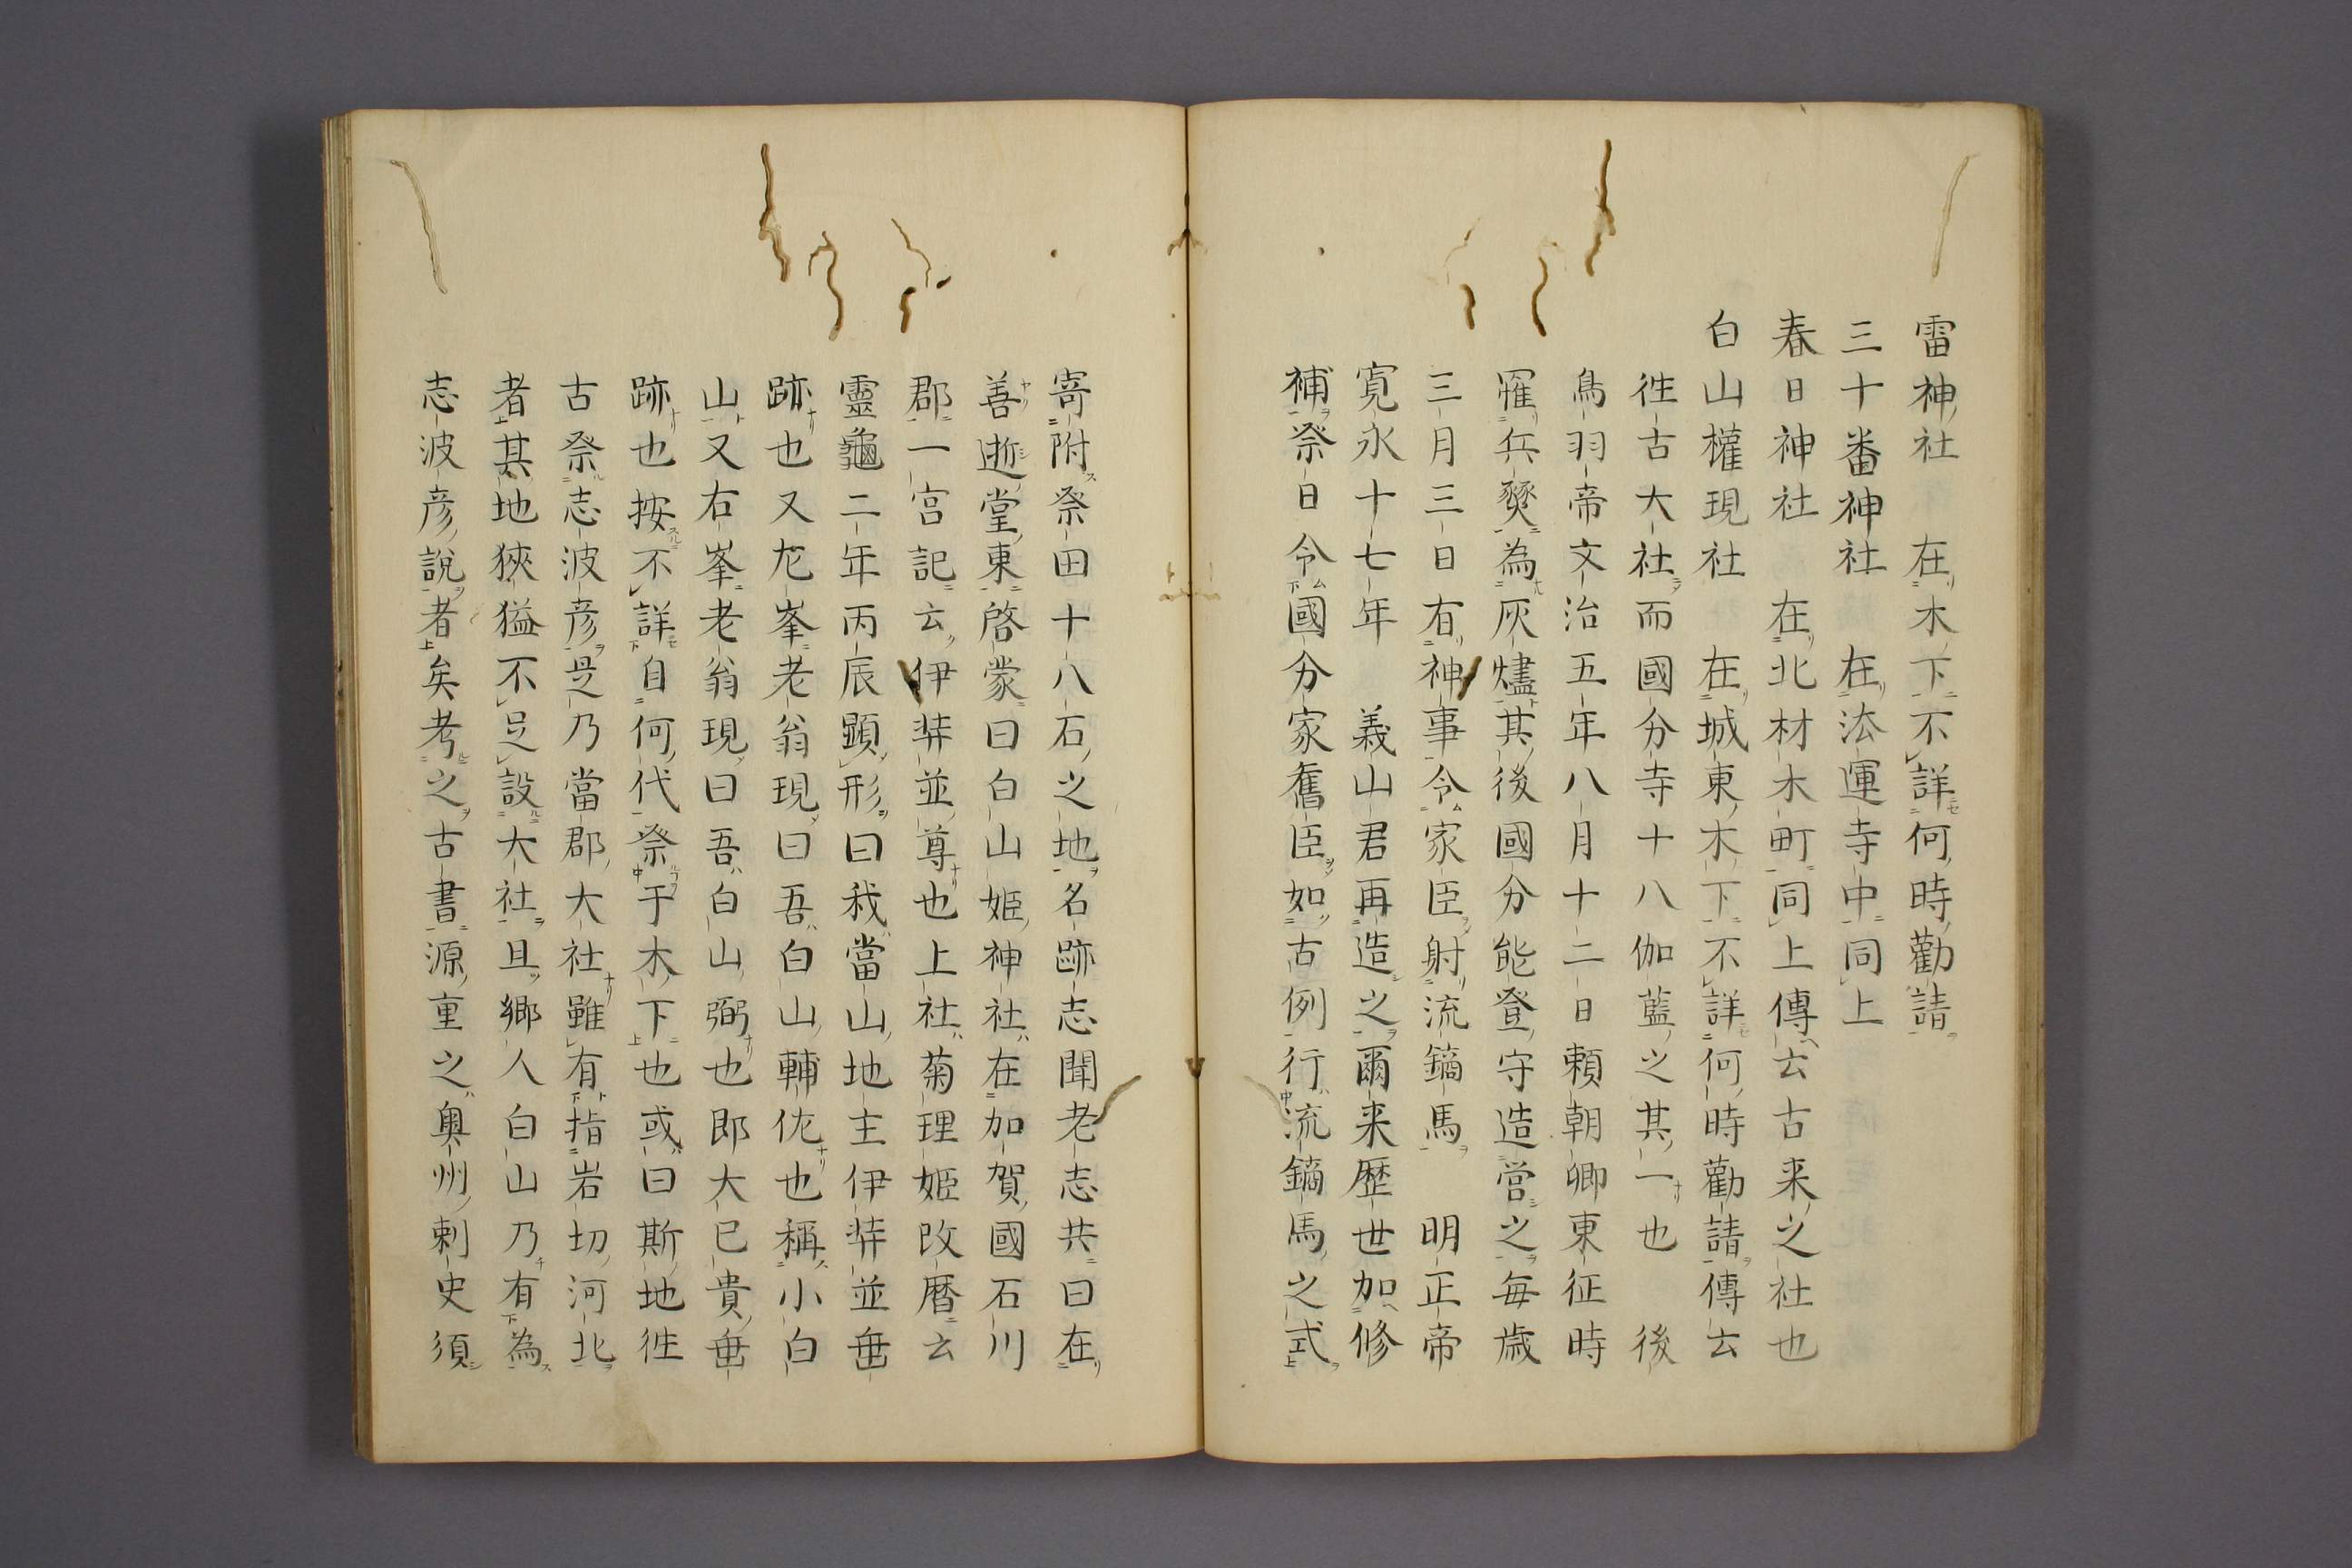 雷神社　在木下不詳何時勸請
三十番神社　在法運寺中同上
春日神社　在北材木町同上傳云古来之社也
白山權現社　在城東木下不詳何時勸請傳云
徃古大社而國分寺十八伽藍之其一也　後
鳥羽帝文治五年八月十二日頼朝卿東征時
罹兵燹為灰燼其後國分能登守造営之毎歳
三月三日有神事令家臣射流鏑馬　明正帝
寛永十七年　義山君再造之爾来歴世加修
補祭日令國分家舊臣如古例行流鏑馬之式
寄附祭田十八石之地名跡志聞老志共曰在
善逝堂東啓蒙曰白山姫神社在加賀國石川
郡一宮記云伊弉並尊也上社菊理姫改暦云
靈龜二年丙辰顕形曰我當山地主伊弉並垂
跡也又尨峯老翁現曰吾白山輔佐也稱小白
山又右峯老翁現曰吾白山弼也即大已貴垂
跡也按不詳自何代祭于木下也或曰斯地徃
古祭志波彦是乃當郡大社雖有指岩切河北
者其地狹猶不足設大社且郷人白山乃有為
志波彦説者矣考之古書源重之奥州刺史須